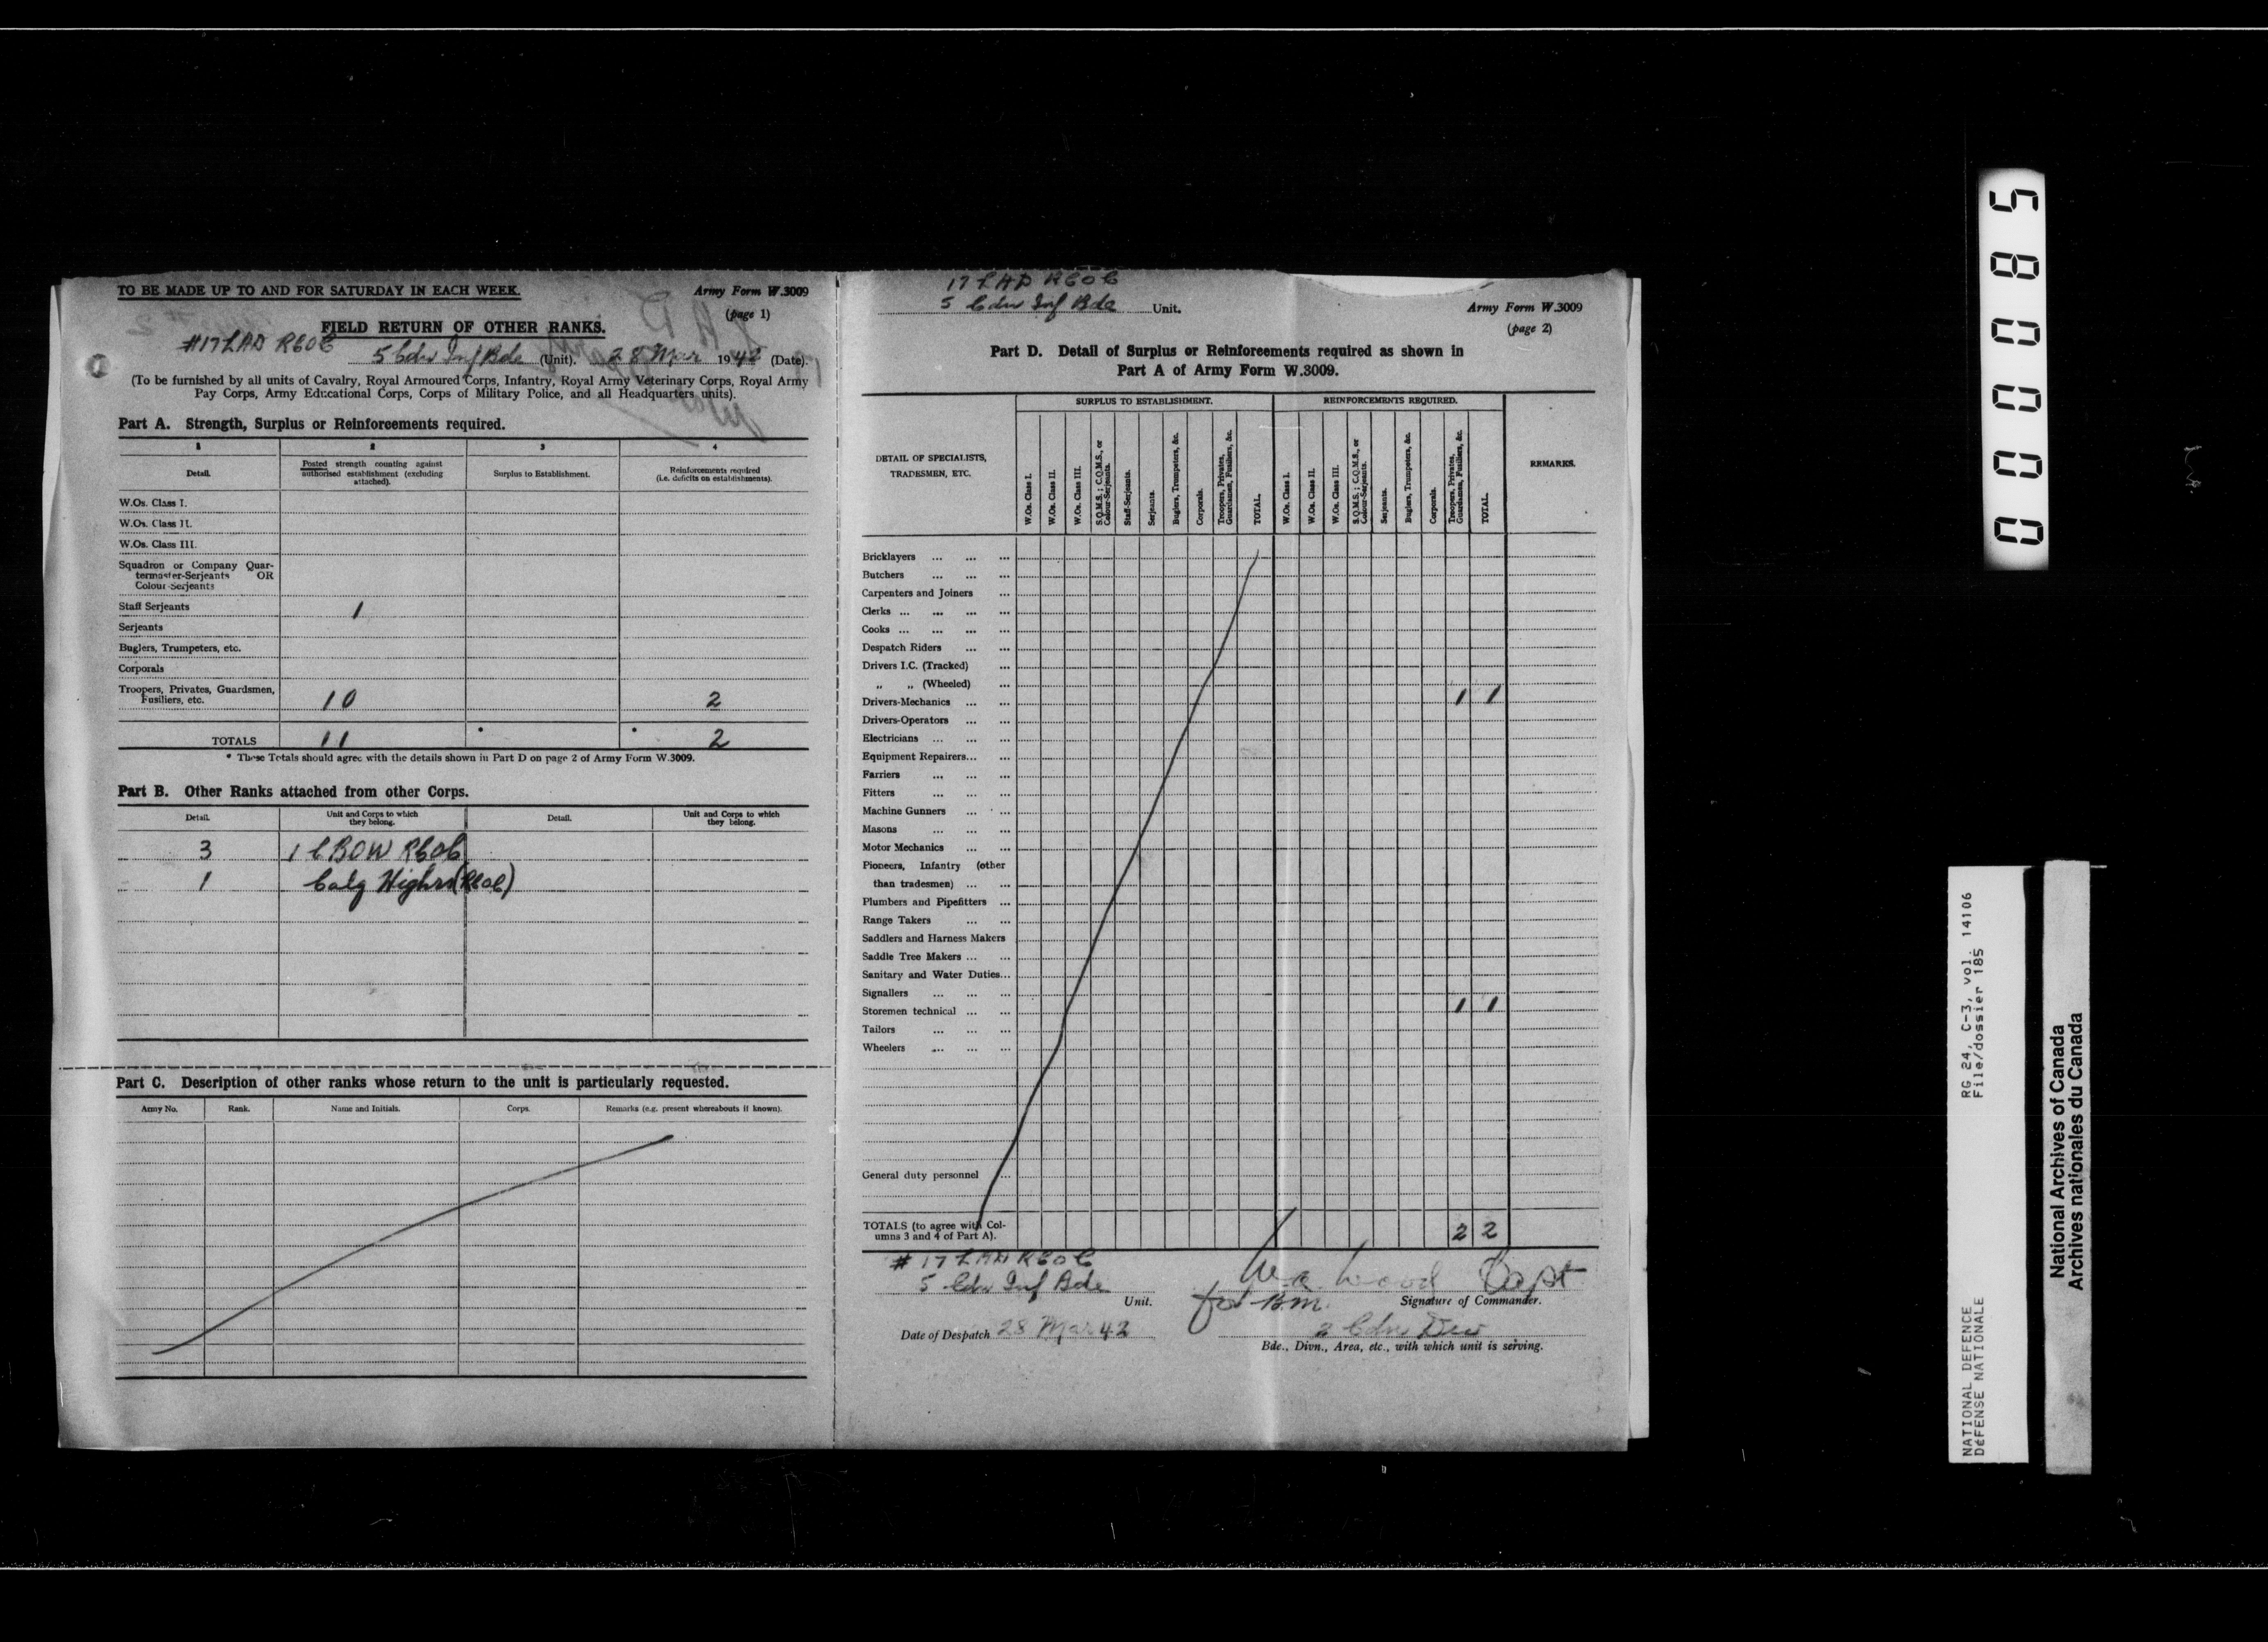 TO BE MADE UP TO AND FOR SATURDAY IN EACH WEEK.
Army Form W.3009
(page 1)
FIELD RETURN OF OTHER RANKS.
#17 LAD RCOC
5 Cdn Inf Bde (Unit). 28 Mar 1942 (Date).
(To be furnished by all units of Cavalry, Royal Armoured Corps, Infantry, Royal Army Veterinary Corps, Royal Army
Pay Corps, Army Educational Corps, Corps of Military Police, and all Headquarters units).
Part A. Strength, Surplus or Reinforcements required.
1 2 3 4
Detail.
Posted strength counting against
authorised establishment (excluding
attached).
Surplus to Establishment.
Reinforcements required
(i.e. deficits on establishments).
W.Os. Class I.
W.Os. Class II.
W.Os. Class III.
Squadron or Company Quar-
termaster-Serjeants OR
Colour-Serjeants
Staff Serjeants 1
Serjeants
Buglers, Trumpeters, etc.
Corporals
Troopers, Privates, Guardsmen,
Fusiliers, etc. 10 2
TOTALS 11 * * 2
* These Totals should agree with the details shown in Part D on page 2 of Army Form W.3009.
Part B. Other Ranks attached from other Corps.
Detail.
Unit and Corps to which
they belong.
Detail.
Unit and Corps to which
they belong.
3 1 CBOW RCOC
1 Calg Highrs (RCOC)
Part C. Description of other ranks whose return to the unit is particularly requested.
Army No. Rank. Name and Initials. Corps. Remarks (e.g. present whereabouts if known).
17 LAD RCOC
5 Cdn Inf Bde Unit.
Army Form W.3009
(page 2)
Part D. Detail of Surplus or Reinforcements required as shown in
Part A of Army Form W.3009.
DETAIL OF SPECIALISTS,
TRADESMEN, ETC.
SURPLUS TO ESTABLISHMENT.
W.Os. Class I.
W.Os. Class II.
W.Os. Class III.
S.Q.M.S.; C.Q.M.S., or
Colour-Serjeants.
Staff-Serjeants.
Serjeants.
Buglers, Trumpeters, &c.
Corporals.
Troopers, Privates,
Guardsmen, Fusiliers, &c.
TOTAL.
REINFORCEMENTS REQUIRED.
W.Os. Class I.
W.Os. Class II.
W.Os. Class III.
S.Q.M.S.; C.Q.M.S., or
Colour-Serjeants.
Serjeants.
Buglers, Trumpeters, &c.
Corporals.
Troopers, Privates,
Guardsmen, Fusiliers, &c.
TOTAL.
REMARKS.
Bricklayers ... ... ...
Butchers ... ... ...
Carpenters and Joiners ...
Clerks ... ... ... ...
Cooks ... ... ... ...
Despatch Riders ... ...
Drivers I.C. (Tracked) ...
„ „ (Wheeled) ...
Drivers-Mechanics ... ... 1 1
Drivers-Operators ... ...
Electricians ... ... ...
Equipment Repairers... ...
Farriers ... ... ...
Fitters ... ... ...
Machine Gunners ... ...
Masons ... ... ...
Motor Mechanics ... ...
Pioneers, Infantry (other
than tradesmen) ... ...
Plumbers and Pipefitters ...
Range Takers ... ...
Saddlers and Harness Makers
Saddle Tree Makers ... ...
Sanitary and Water Duties...
Signallers ... ... ...
Storemen technical ... ... 1 1
Tailors ... ... ...
Wheelers ... ... ...
General duty personnel ...
TOTALS (to agree with Col-
umns 3 and 4 of Part A). 2 2
# 17 LAD RCOC
5 Cdn Inf Bde
Unit.
Capt
for BM.
Signature of Commander.
Date of Despatch 28 Mar 42
2 Cdn Div
Bde., Divn., Area, etc., with which unit is serving.
000085
NATIONAL DEFENCE RG 24, C-3, vol. 14106
DéFENSE NATIONALE File/dossier 185
National Archives of Canada
Archives nationales du Canada